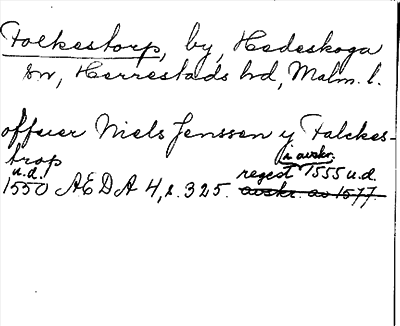 Folkestorp, by, Hedeskoga
sn, Herrestads hd, Malm. l.
offuer Niels Jenssen y Falckes-
trop
i avskr.
u.d. regest 1555 u.d.
1550 AEDA 4, s. 325. avskr. av 1577.